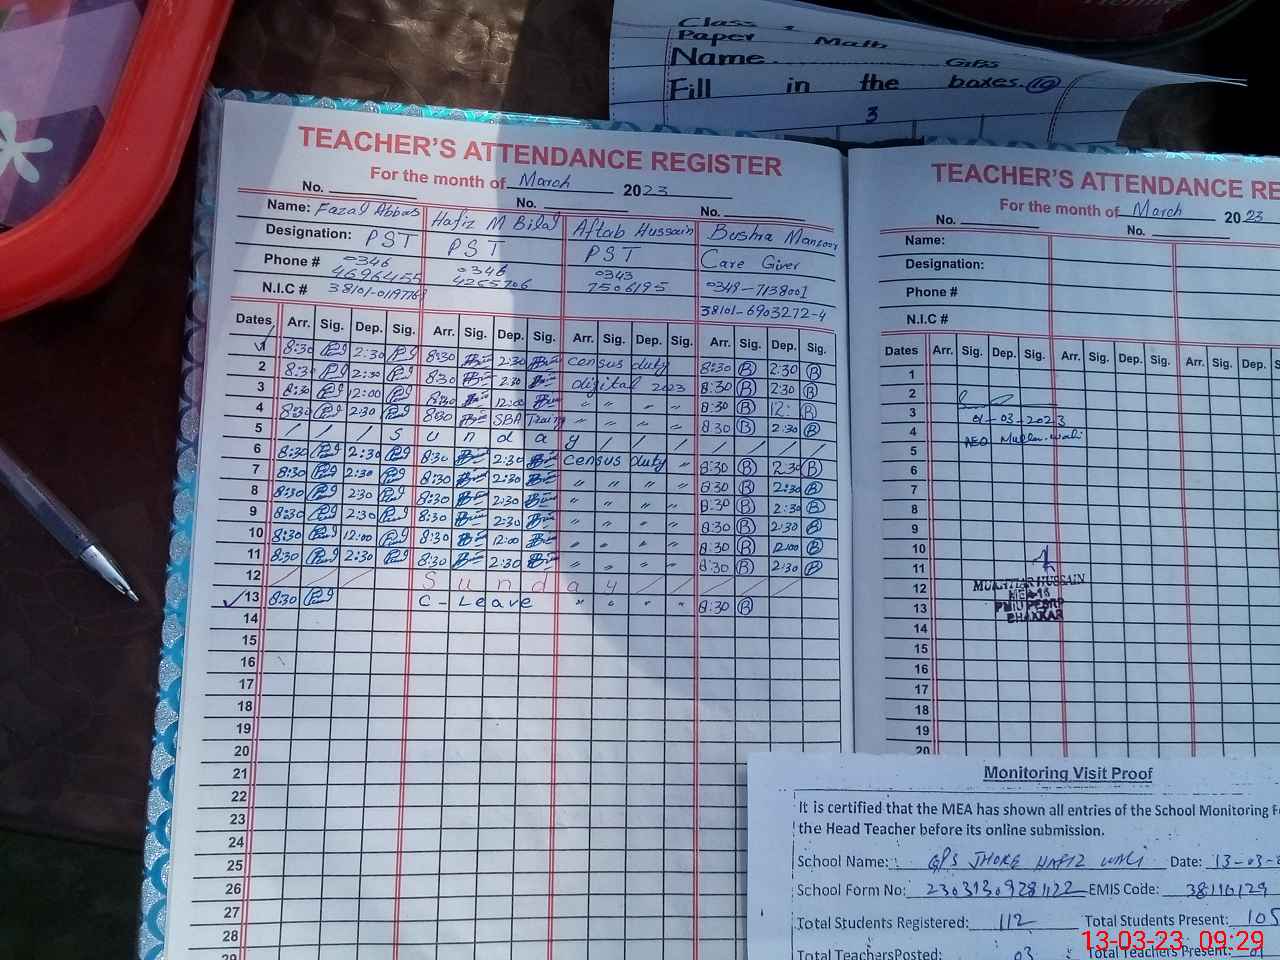 Class
Paper Math
Name ............ GPS
Fill in the boxes. 10
3
TEACHER'S ATTENDANCE REGISTER
For the month of March 2023
No. No. No.
Name: Fazal Abbas Hafiz M Bilal Aftab Hussain Bushra Mansoor
Designation: PST PST PST Care Giver
Phone # 0346 4696455 0346 4255706 0343 7506195 0348-7138001
N.I.C # 38101-6903272-4
Dates Arr. Sig. Dep. Sig. Arr. Sig. Dep. Sig. Arr. Sig. Dep. Sig. Arr. Sig. Dep. Sig.
1 8:30 2:30 8:30 2:30 census duty 8:30 B 2:30 B
2 8:30 2:30 8:30 2:30 digital 2023 8:30 B 2:30 B
3 8:30 12:00 8:30 12:00 " " " " 8:30 B 12: B
4 8:30 2:30 8:30 SBA 8:30 B 2:30 B
5 / / / S u n d a y / / / / / / /
6 8:30 2:30 8:30 2:30 census duty " 8:30 B 2:30 B
7 8:30 2:30 8:30 2:30 " " " " 8:30 B 2:30 B
8 8:30 2:30 8:30 2:30 " " " " 8:30 B 2:30 B
9 8:30 2:30 8:30 2:30 " " " " 8:30 B 2:30 B
10 8:30 12:00 8:30 12:00 " " " " 8:30 B 12:00 B
11 8:30 2:30 8:30 2:30 " " " " 8:30 B 2:30 B
12 / / / S u n d a y / / / / /
13 8:30 C - Leave " " " " 8:30 B
14
15
16
17
18
19
20
21
22
23
24
25
26
27
28
29
TEACHER'S ATTENDANCE RE
For the month of March 2023
No. No.
Name:
Designation:
Phone #
N.I.C #
Dates Arr. Sig. Dep. Sig. Arr. Sig. Dep. Sig. Arr. Sig. Dep.
1
2
3 01-03-2023
4 AEO
5
6
7
8
9
10
11
12 MUKHTIAR HUSSAIN
13 MEA-16
PMIU PESRP
14 BHAKKAR
15
16
17
18
19
20
Monitoring Visit Proof
It is certified that the MEA has shown all entries of the School Monitoring Fo
the Head Teacher before its online submission.
School Name: GPS JHOKE HAFIZ WALI Date: 13-03-2
School Form No: EMIS Code: 38110129
Total Students Registered: 112 Total Students Present: 105
Total TeachersPosted: 03 Total Teachers Present: 01
13-03-23 09:29